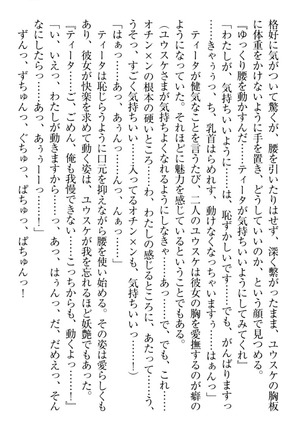 格好に気がついて驚くが、腰を引いたりはせず、深く繋がったまま、ユウスケの胸板
に体重をかけないように手を置き、どうしていいのか、という顔で見つめる。
『ゆっくり腰を動かすんだ……ティータが気持ちいいようにしてみてくれ』
「わたしが、気持ちいいように……は、恥ずかしいです……でも、がんばりますっ
……きゃぅぅっ、ち、乳首はそれらめ、動けなくなっちゃいますぅ……はぁんっ」
　ティータが健気なことを言うたび、二人のユウスケは彼女の胸を愛撫するのが癖の
ようになっていた。それほどに魅力を感じているということでもある。
（ユウスケさまが気持ちよくなれるようにしなきゃ……あっ……で、でも、これ……
オチン×ンの根本の硬いところ……わ、わたしの感じるところに、あたって……う、
うっ、すごく気持ちいい……入ってるオチン×ンも、気持ちいいっ……）
「はぁっ……あっ、あぅんっ……んっ、んぁっ……」
　ティータは恥じらうように口元を抑えながら、腰を使い始める。その姿は愛らしくも
あり、彼女が快楽を求めて動く姿は、ユウスケが我を忘れるほど妖艶でもあった。
『ティータ……ご、ごめん、俺も我慢できない……こっちからも、動くよ……っ！』
「い、いえっ、わたしが動きますから……っ、あっ、はぁんっ、だ、だめぇっ、そん
なにしたらっ……あっ、あぅぅーーっ……！」
　ずんっ、ずちゅんっ、ぐちゅっ、ぱちゅっ、ぱちゅんっ！